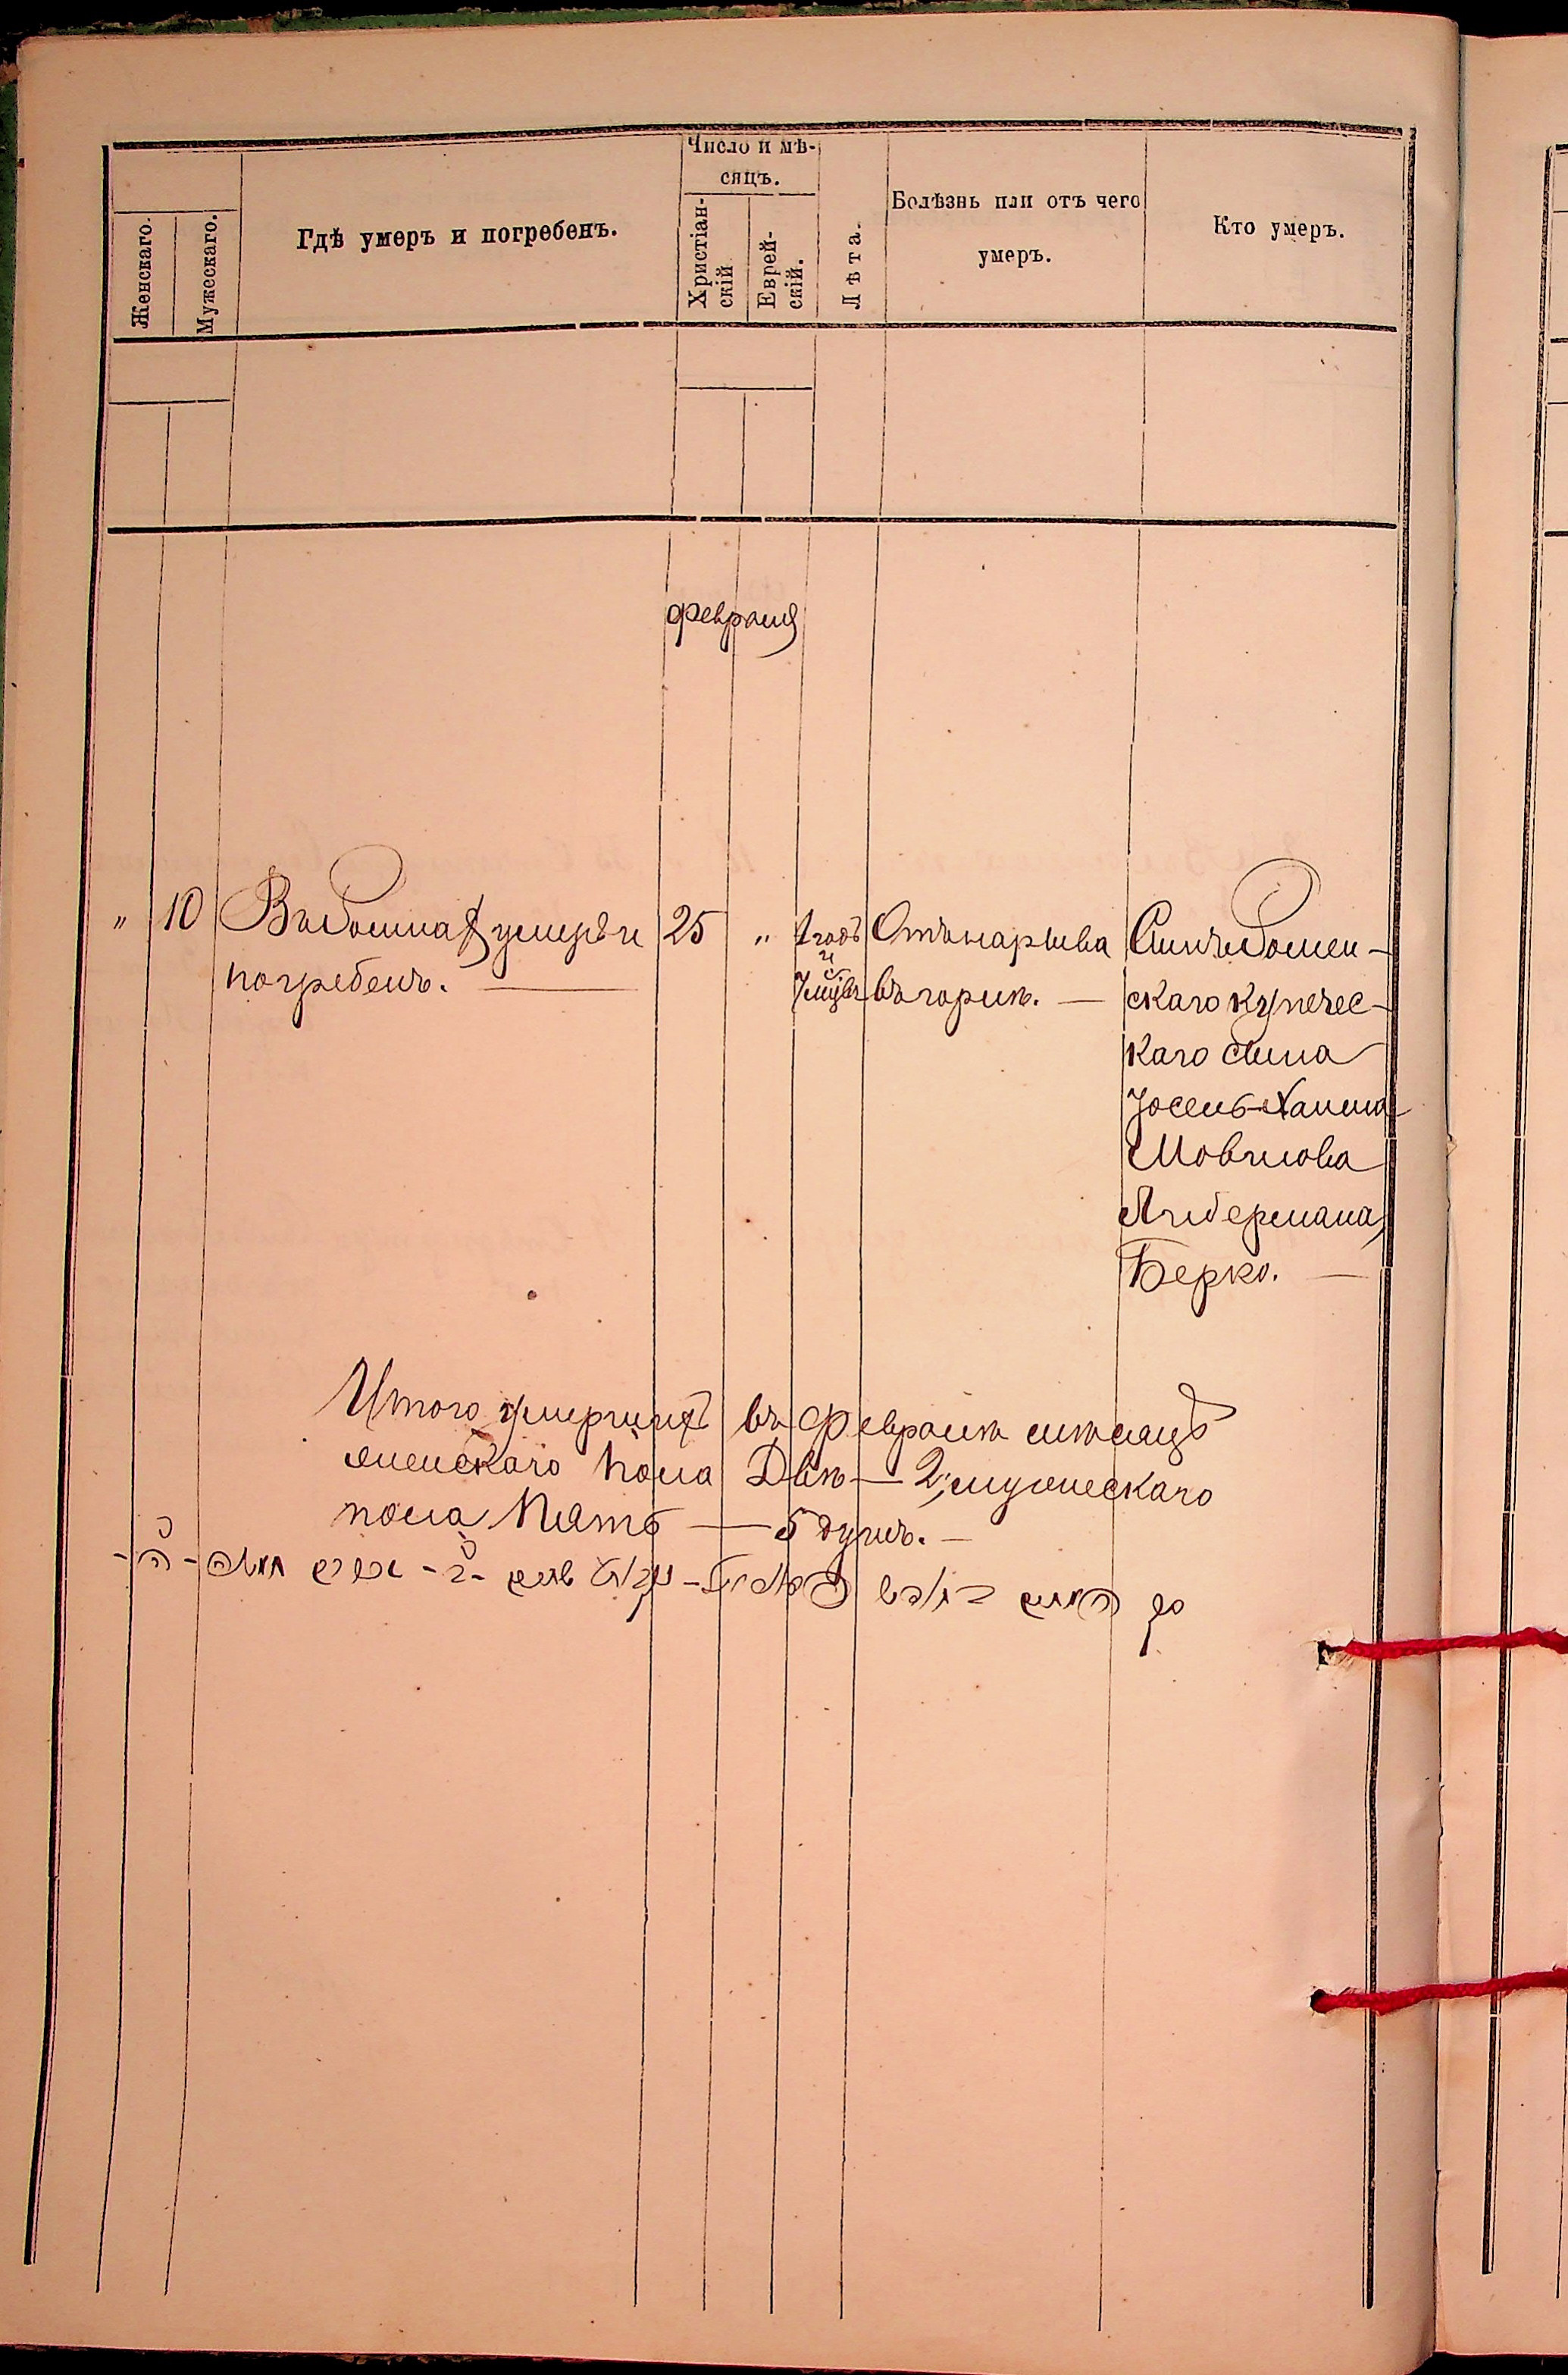 Число и мѣ-
сяцъ.
Женскаго.
Мужескаго.
Гдѣ умеръ и погребенъ.
Христіан-
скій
Еврей-
скій.
Лѣта.
Болѣзнь или отъ чего
умеръ.
Кто умеръ.
Февраля
" 10 умеръ и 25 " 1 годъ Отъ нарыва Сынъ
погребенъ. — и 7 мѣс. въ горлѣ. — скаго купечес-
каго сына
Іосель-Хаима
Мовшова
Либермана,
Берко. —
Итого умершихъ въ Февралѣ мѣсяцѣ
женскаго пола Двѣ — 2, мужескаго
пола Пять — 5 душъ. —